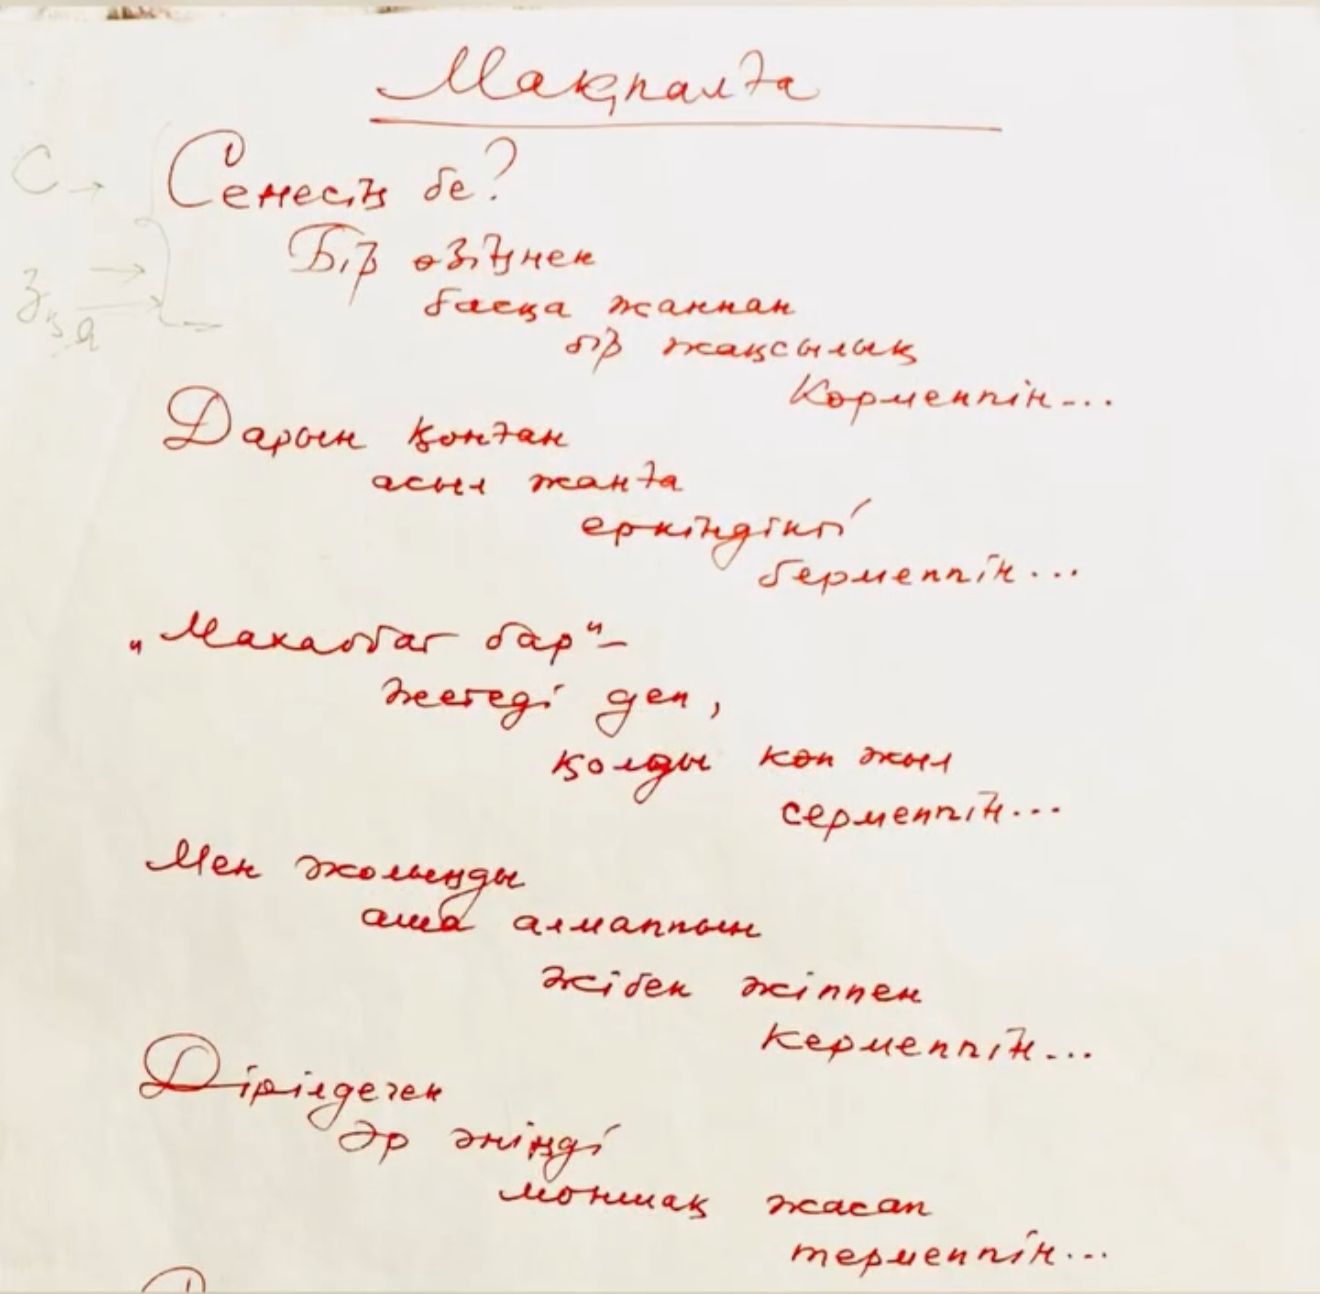 Мақпалға
Сенесің бе?
Бір өзіңнен
басқа жаннан
бір жақсылық
Көрмеппін...
Дарын қонған
асыл жанға
еркіндікті
бермеппін...
„Махаббат бар"–
жетеді деп,
қолды көп жыл
сермеппін...
Мен жолыңды
аша алмаппын
жібек жіппен
кермеппін...
Дірілдеген
әр әніңді
моншақ жасап
термеппін...